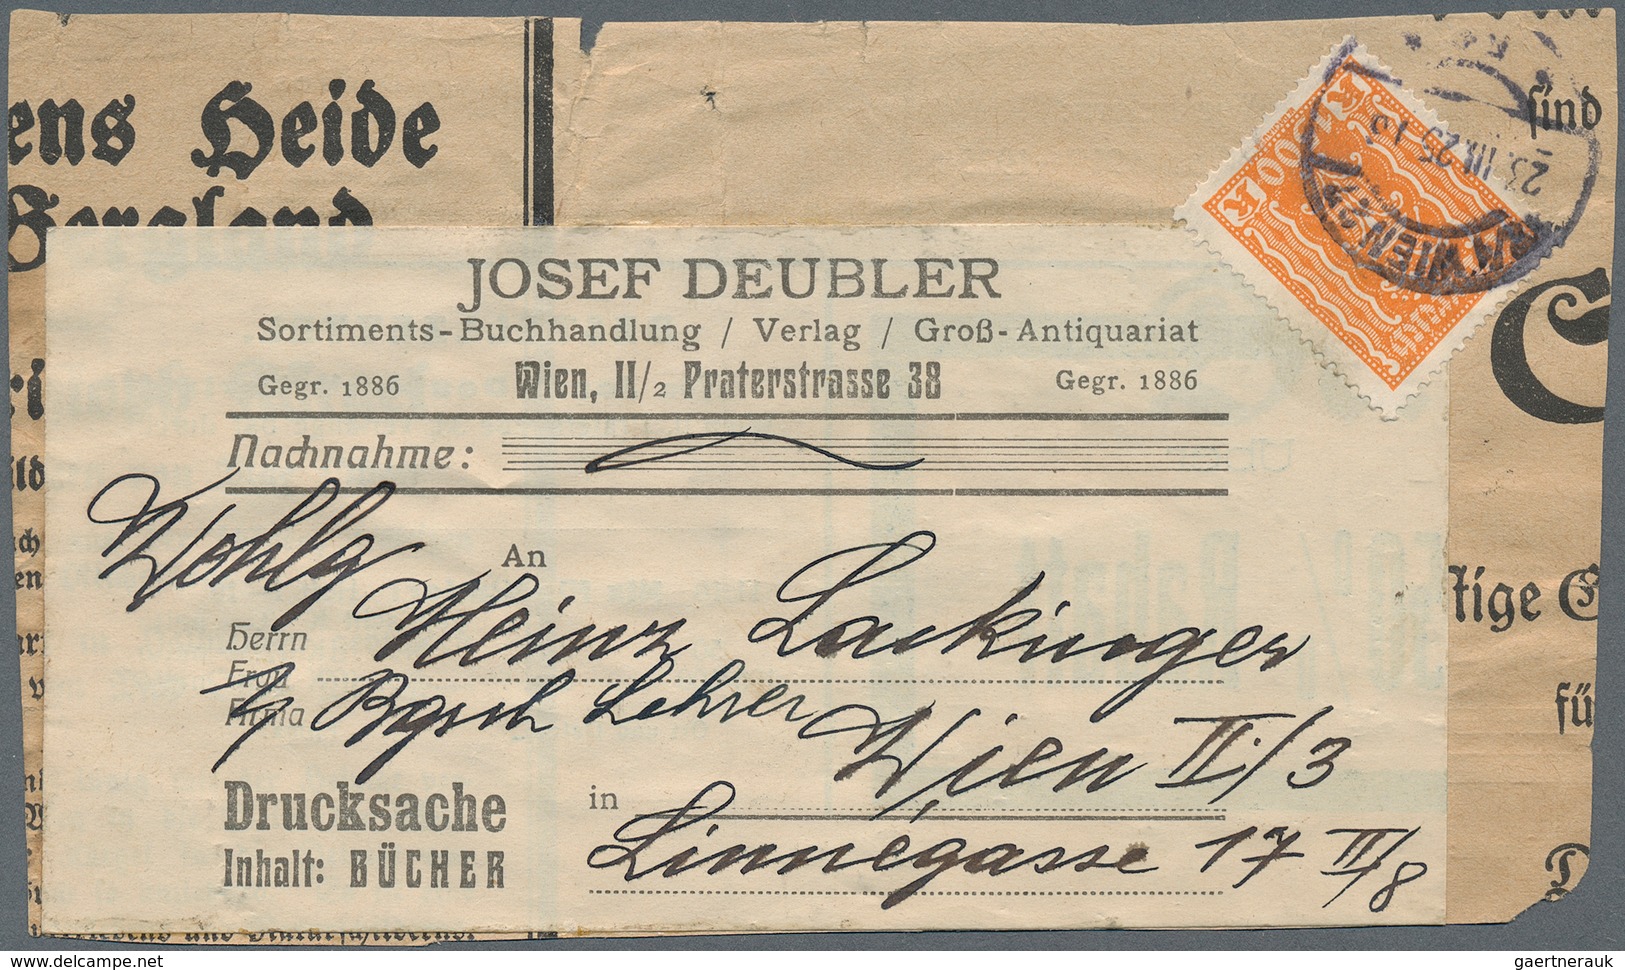 ens Heide
Bergland
sind
23.III.25
WIEN
1000
K
K
JOSEF DEUBLER
Sortiments-Buchhandlung / Verlag / Groß-Antiquariat
Gegr. 1886 Wien, II/2 Praterstrasse 38 Gegr. 1886
Nachnahme:
Wohlg
An
Herrn Heinz Lackinger
Frau
Firma Bgsch Lehrer
Wien II/3
Drucksache in
Linnégasse 17 II/8
Inhalt: BÜCHER
ild
en
tige
fü
delcampe.net
gaertnerauk